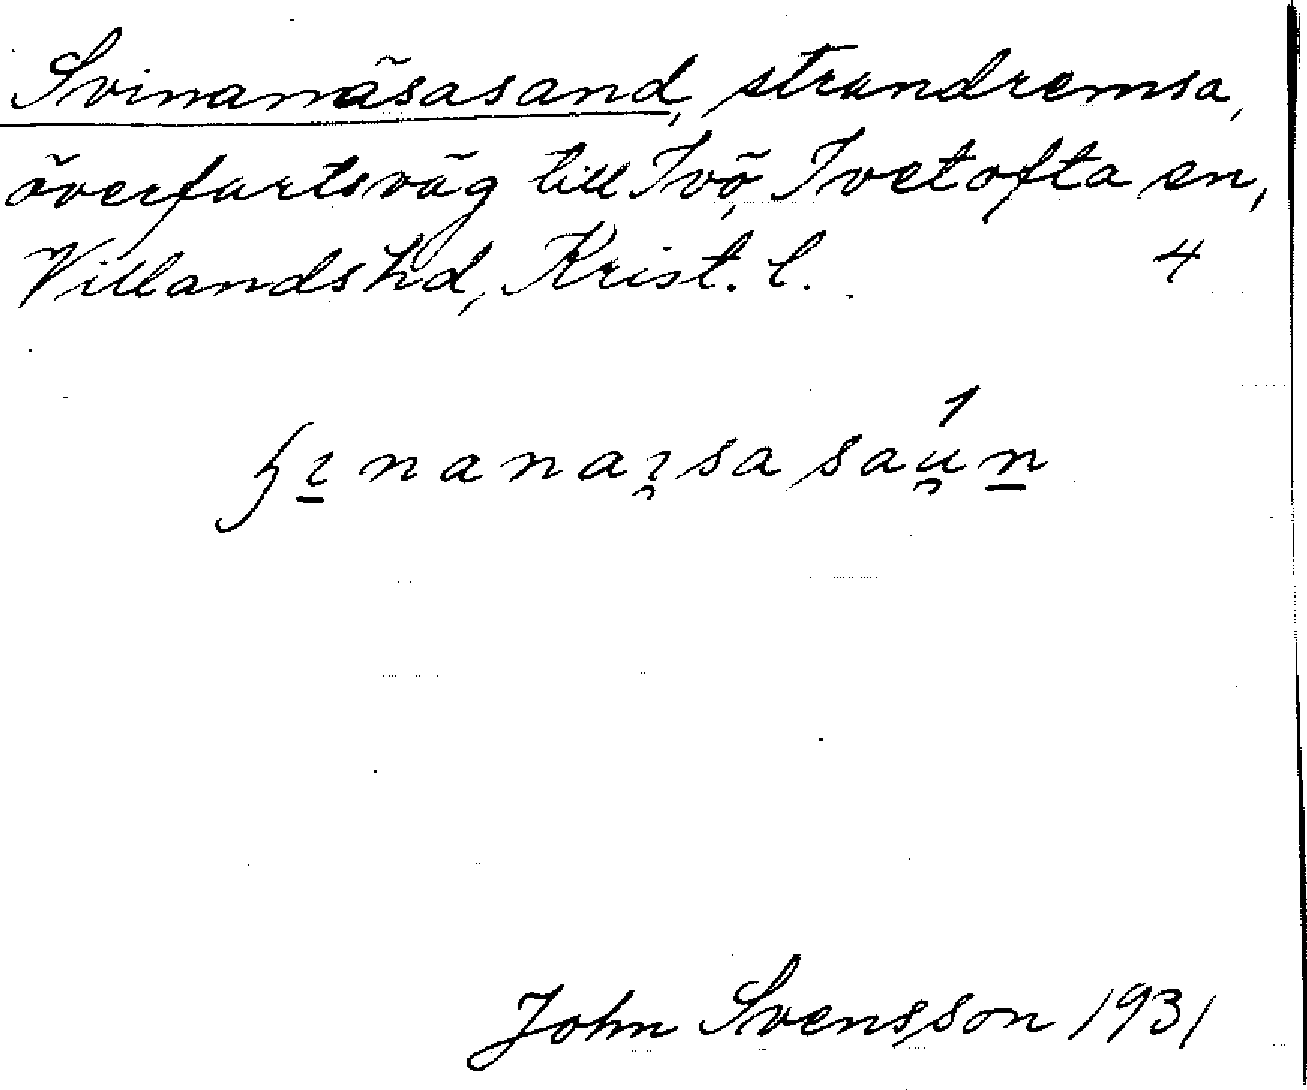 Svinanäsasand, strandremsa,
överfartsväg till Ivö, Ivetofta sn,
Villands hd, Krist. l. 4
John Svensson 1931